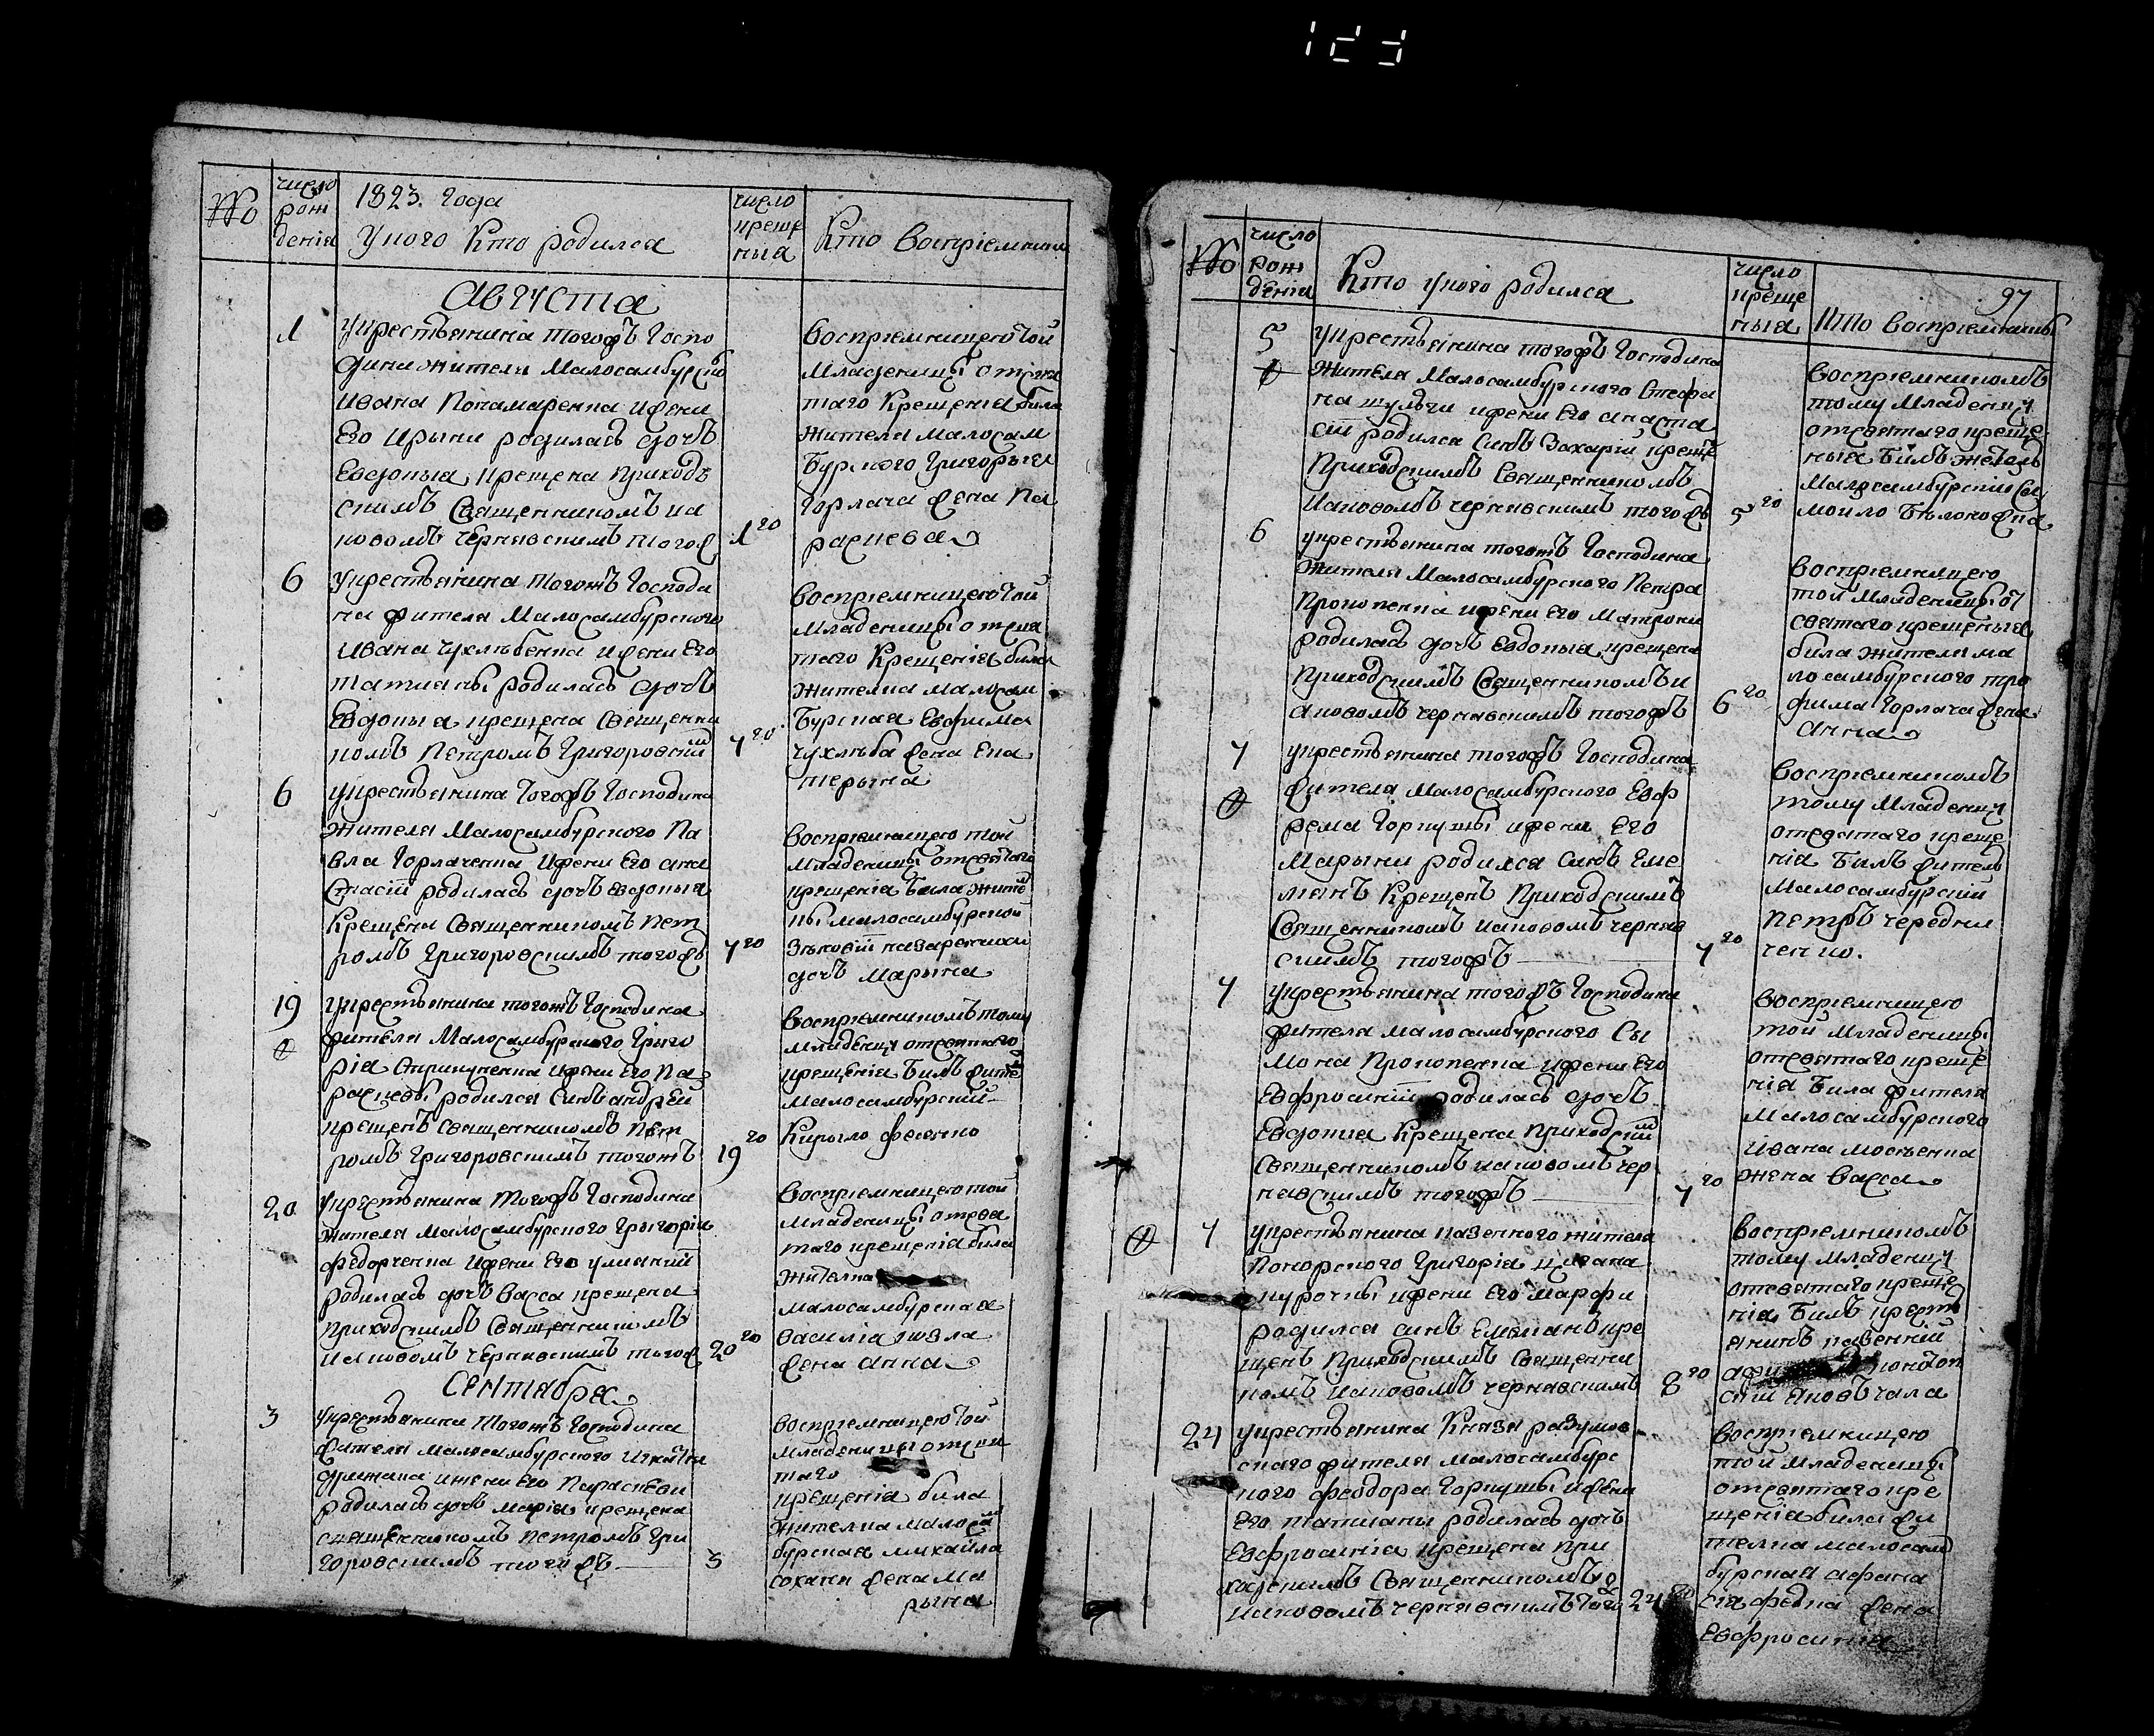 123
№
число рож дения
1823. года
У кого Кто родился
число креще ния
Кто Восприемники
Августа
1
У крестьянина тогожъ Госпо
дина жителя Малосамбурского
Ивана Понамаренка и жени
Его Ирыни родилась дочь
Евдокиа крещена Приход
скимъ Священникомъ Иа
ковомъ Чернявскимъ тогож
1 го
Восприемницею той
Младеницы от свя
таго Крещения била
жителя Малосам
Бурского Григорыя
Горлача жена Па
раскева
6
У крестьянина тогожъ Господи
на жителя Малосамбурского
Ивана Чухлѣбенка и жени Его
Татианы родилась дочь
Евдокыа крещена Священни
комъ Петромъ Григоровским
7 го
Восприемницею той
Младеницы от свя
таго Крещения била
жителка Малосам
Бурская Евфима
Чухлѣба жена Ека
терына
6
У крестьянина тогожъ Господина
жителя Малосамбурского Па
вла Горлаченка и жени Его Ана
стасіи родилась дочь Евдокыа
Крещена Священникомъ Пет
ромъ Григоровскимъ тогожъ
7 го
Восприемницею той
Младеницы от святого
крещения Била жител
ки Малосамбурской
дочь Марына
19
У крестьянина тогожъ Господина
жителя Малосамбурского Григо
рия и жени Его Па
раскевы родился Синъ Андрей
крещенъ Священникомъ Пет
ромъ Григоровскимъ тогожъ
19 го
Восприемникомъ тому
Младенцу от святаго
крещения Билъ жите
Малосамбурский
Кирыло Фесенко
20
У крестьянина тогожъ Господина
жителя Малосамбурского Грыгория
Федорченка и жени Его Улианий
родилась дочь Васса крещена
Приходскимъ Священникомъ
Иаковомъ Чернявскимъ тогож
20 го
Восприемницею той
Младеницы от свя
таго крещения била
Жителка
Малосамбурская
Василиа
жена Анна
Сентабра
3
У крестьянина тогожъ Господина
жителя Малосамбурского Игнатия
и жени Его Параскеви
родилась дочь Мария крещена
священникомъ Петромъ Гри
горовскимъ тогожъ
3
Восприемницею той
Младеницы от свя
таго
крещения била
жителка Малоса
бурская Михайла
Сохани жена Ма
рына
97
№
число рож дения
Кто у кого родился
число креще ния
Кто Восприемники
5
У крестьянина тогожъ Господина
Жителя Малосамбурского Стефа
на Шульги и жени Его Анаста
сіи родился Синъ Захарий креще
Приходскимъ Священникомъ
Иаковомъ Чернявскимъ тогожъ
5 го
Восприемникомъ
тому Младенцу
от святаго креще
ния Билъ житель
Малосамбурский Са
мойло Бѣлоножка
6
У крестьянина тогожъ Господина
Жителя Малосамбурского Петра
Прокопенка и жени Его Матрони
родилась дочь Евдокыа крещена
Приходскимъ Священникомъ И
аковомъ Чернявскимъ тогожъ
6 го
Восприемницею
той Младеницы от
святаго крещения
била жителя Ма
лосамбурского Тро
фима Горлача жена
Анна
7
У крестьянина тогожъ Господина
жителя Малосамбурского Ефф
рема Горкушы и жени Его
Марыни родился Синъ Еме
лианъ Крещенъ Приходскимъ
Священникомъ Иаковомъ Черняв
скимъ тогожъ
7 го
Восприемникомъ
тому Младенцу
от святаго креще
ния Билъ житель
Малосамбурский
Петръ Чередни
ченко.
7
У крестьянина тогожъ Господина
жителя Малосамбурского Си
мона Прокопенка и жени Его
Евфросинии родилась дочь
Евдокиа Крещена Приходским
Священникомъ Иаковомъ Чер
нявскимъ тогожъ
7 го
Восприемницею
той Младеницы
от святаго креще
ния Била жителя
Малосамбурского
Ивана Москенка
жена Васса
7
У крестьянина казенного жителя
Понорского Григория Цигана
курочкы и жени Его Марфи
родился синъ Емелианъ кре
щенъ Приходскимъ Священни
комъ Иаковомъ Чернявскимъ
8 го
Восприемникомъ
тому Младенцу
от святаго креще
ния Билъ крестъ
янинъ казенний
конотоп
ский Яковъ Чала
24
У крестьянина Князя Разумов
скаго жителя Малосамбурс
кого Феодора Горкушы и жени
Его Татианы родилась дочь
Евфросиния крещена При
ходскимъ Священникомъ
Иаковомъ Чернявскимъ того
24 го
Восприемницею
той Младеницы
от святаго кре
щения била жи
телка Малосам
бурская Афана
сия Федка жена
Евфросиния